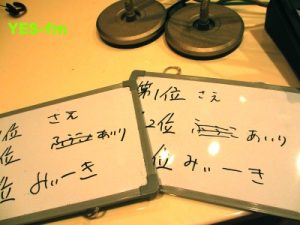 YES-fm
位 さえ
位 あいり
位 みぃーき
第1位 さぇ
2位 あいり
位 みぃーき